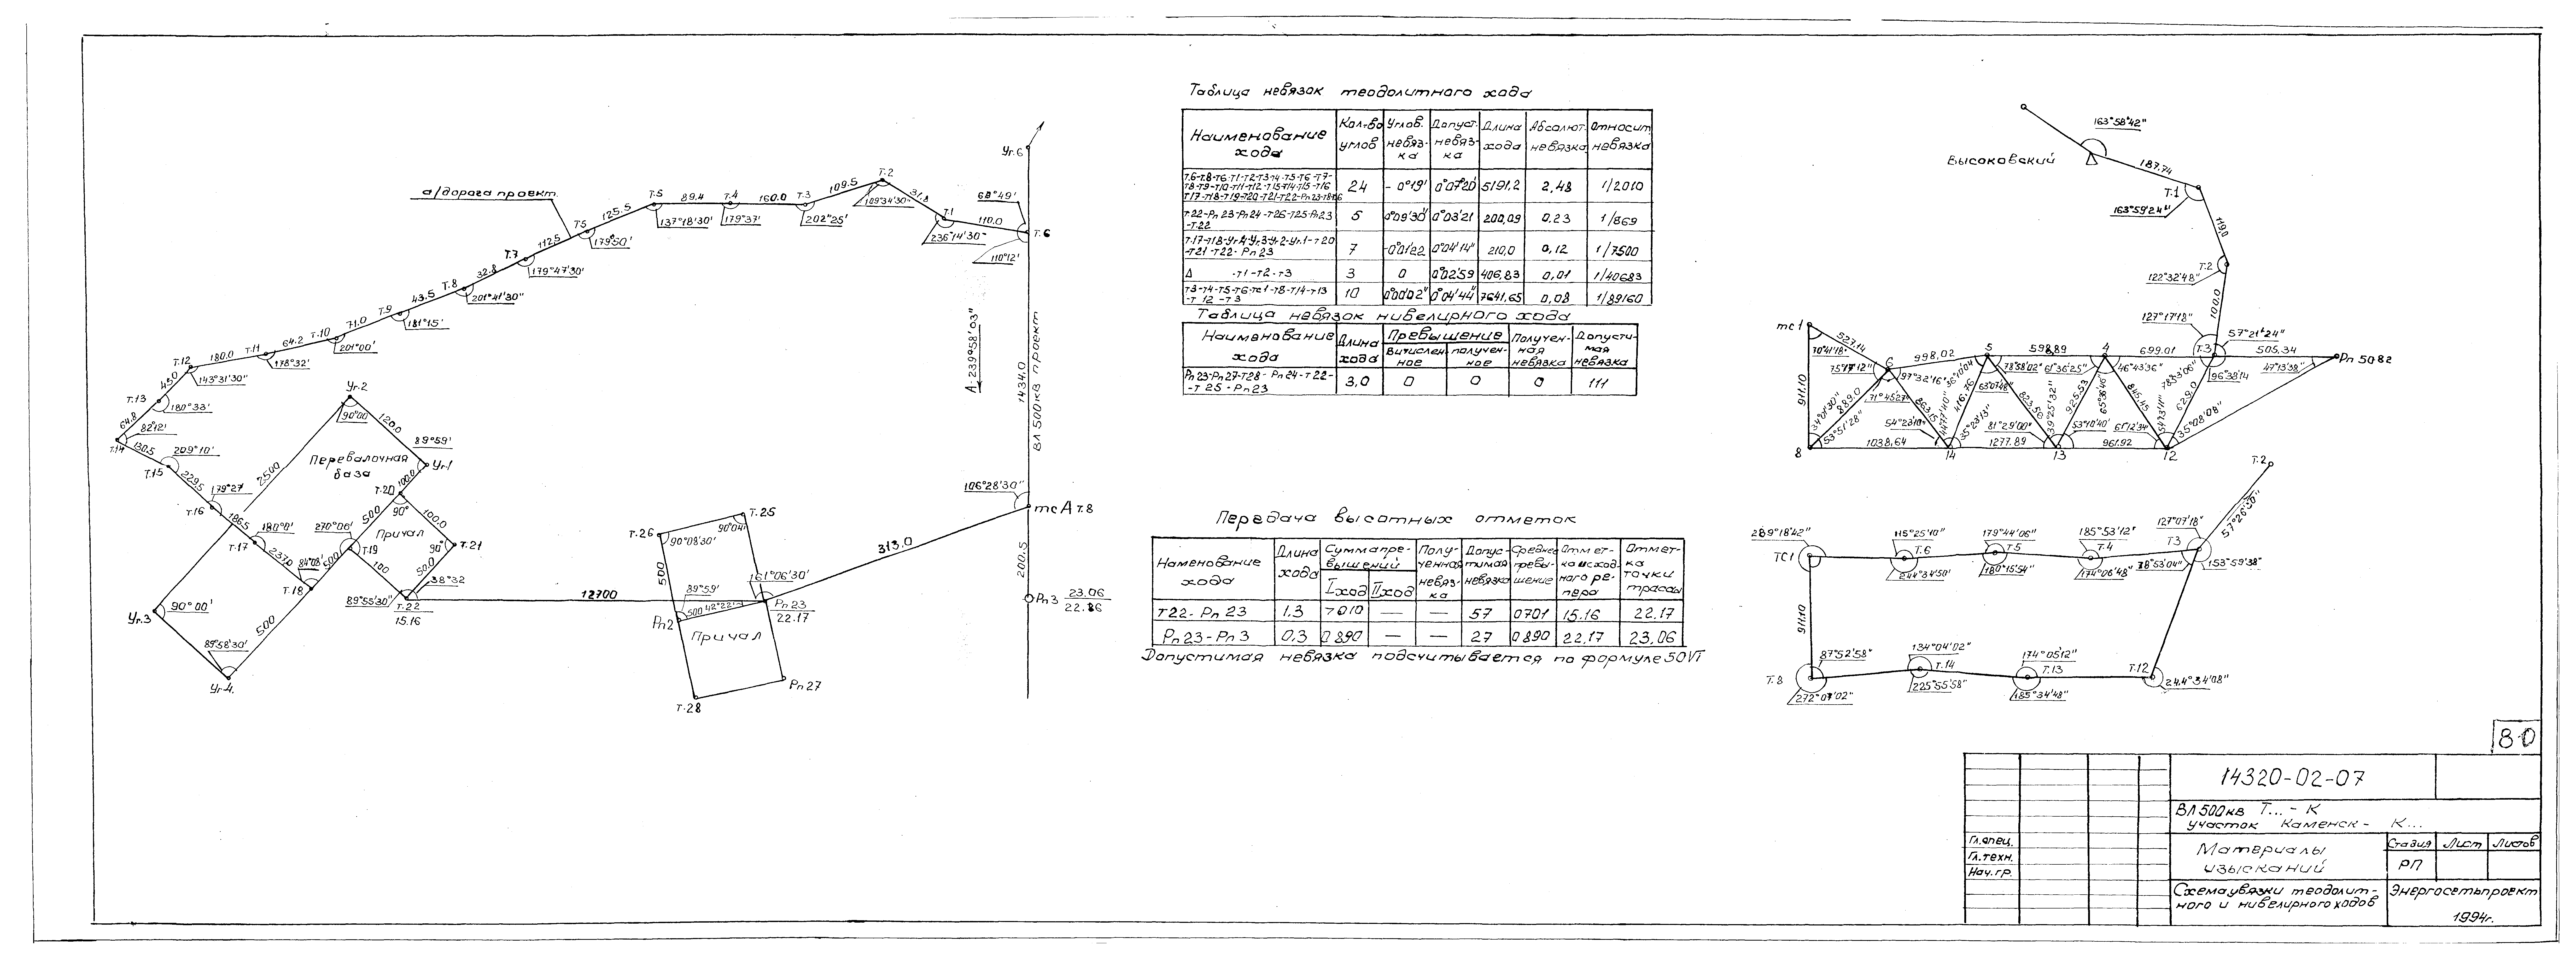 Уг.6
68°49'
Т.6
110°12'
110.0
Т.1
236°14'30"
31.8
Т.2
109°34'30"
109.5
Т.3
202°25'
160.0
Т.4
179°37'
89.4
Т.5
137°18'30'
125.5
Т5
179°50'
а/дорога проект.
112.5
Т.7
179°47'30'
32.8
Т.8
201°41'30"
43.5
Т.9
181°15'
71.0
Т.10
201°00'
64.2
Т.11
178°32'
180.0
Т.12
143°31'30"
45.0
Т.13
180°33'
64.8
82°12'
Т.14
130.5
209°10'
Т.15
229.5
179°27
Т.16
186.5
180°0'
Т.17
237.0
84°08'
Т.18
Уг.2
90°00
120.0
89°59'
Уг.1
Перевалочная
база
2500
100.0
Т.20
90°
500
100.0
270°06'
Причал
Т.19
90°
Т.21
500
100
50.0
38°32
89°55'30"
Т.22
15.16
Уг.3
90°00'
89°58'30'
500
Уг.4.
12700
Т.26
90°08'30'
Т.25
90°04'
500
89°59'
500
42°22'
161°06'30'
Рп 23
22.17
Рп2
Причал
Рп 27
Т.28
313.0
106°28'30"
тс А Т.8
А-239°58'03"
1434.0
ВЛ 500кв проект
200.5
Рп3 23.06
22.86
Таблица невязок теодолитного хода
Наименование хода
Кол-во углов
Углов. невяз-ка
Допуст. невяз-ка
Длина хода
Абсолют. невязка
Относит. невязка
Т.6-Т.8-Т6-Т1-Т2-Т3-Т4-Т5-Т6-Т7-
Т8-Т9-Т10-Т11-Т12-Т13-Т14-Т15-Т16
Т17-Т18-Т19-Т20-Т21-Т22-Рп23-Т8-Т6
24 -0°19' 0°07'20' 5191,2 2,48 1/2010
Т.22-Рп 23-Рп24-Т26-Т25-Рп23
-Т22
5 0°09'30' 0°03'21 200,09 0.23 1/869
Т.17-Т18-Уг4-Уг3-Уг2-Уг.1-Т20
-Т21-Т22-Рп 23
7 -0°01'22 0°04'14" 210,0 0,12 1/7500
Δ -Т1-Т2-Т3
3 0 0°02'59 406,83 0,01 1/40683
Т3-Т4-Т5-Т6-Тс1-Т8-Т14-Т13
-Т12-Т3
10 0°00'02" 0°04'44" 7641,65 0,08 1/89160
Таблица невязок нивелирного хода
Наименование хода
Длина хода
Превышение
Вычислен-ное
получен-ное
Получен-ная невязка
Допусти-мая невязка
Рп23-Рп27-Т28-Рп24-Т22-
-Т25-Рп23
3,0 0 0 0 111
Передача высотных отметок
Наменование хода
Длина хода
Сумма пре-вышений
I ход
II ход
Полу-ченная невяз-ка
Допус-тимая невязка
Среднее превы-шение
Отмет-ка исход-ного ре-пера
Отмет-ка точки трассы
Т22- Рп 23 1.3 7010 — — 57 0701 15.16 22.17
Рп 23-Рп 3 0,3 0890 — — 27 0890 22.17 23.06
Допустимая невязка подсчитывается по формуле 50√Г
163°58'42"
Высоковский
187.74
Т.1
163°59'24"
119,0
Т.2
122°32'48"
110.0
127°17'18"
57°21'24"
Т.3
505.34
Рп 5082
47°13'38"
96°38'14
тс1
527.14
70°41'18"
6
998.02
5
598.89
4
699.01
75°17'12"
97°32'16"
36°10'04
63°07'48"
78°58'02"
61°36'25"
46°43'36"
78°53'06"
911.10
34°01'30"
889.0
53°51'28"
71°45'27"
863.15
44°71'40"
416.76
35°23'13"
823.50
39°25'32"
925.53
65°36'46"
845.45
54°23'11"
629.0
35°08'08"
54°23'10"
81°29'00"
53°10'40'
61°12'34"
8
1038,64
14
1277.89
13
961.92
12
Т.2
57°26'30"
289°18'42"
ТС1
115°25'10"
Т.6
244°34'50'
179°44'06"
Т.5
180°15'54"
185°53'12"
Т.4
174°06'48"
127°07'18"
Т3
78°53'04"
153°59'38"
911.10
87°52'58"
Т.8
272°07'02"
134°04'02"
Т.14
225°55'58"
174°05'12"
Т.13
185°34'48"
Т.12
244°34'08"
80
14320-02-07
ВЛ 500кв Т... - К
участок Каменск - К...
Гл.спец.
Гл.техн.
Нач.гр.
Материалы
изысканий
Стадия Лист Листов
РП
Схема увязки теодолит-
ного и нивелирного ходов
Энергосетьпроект
1994г.